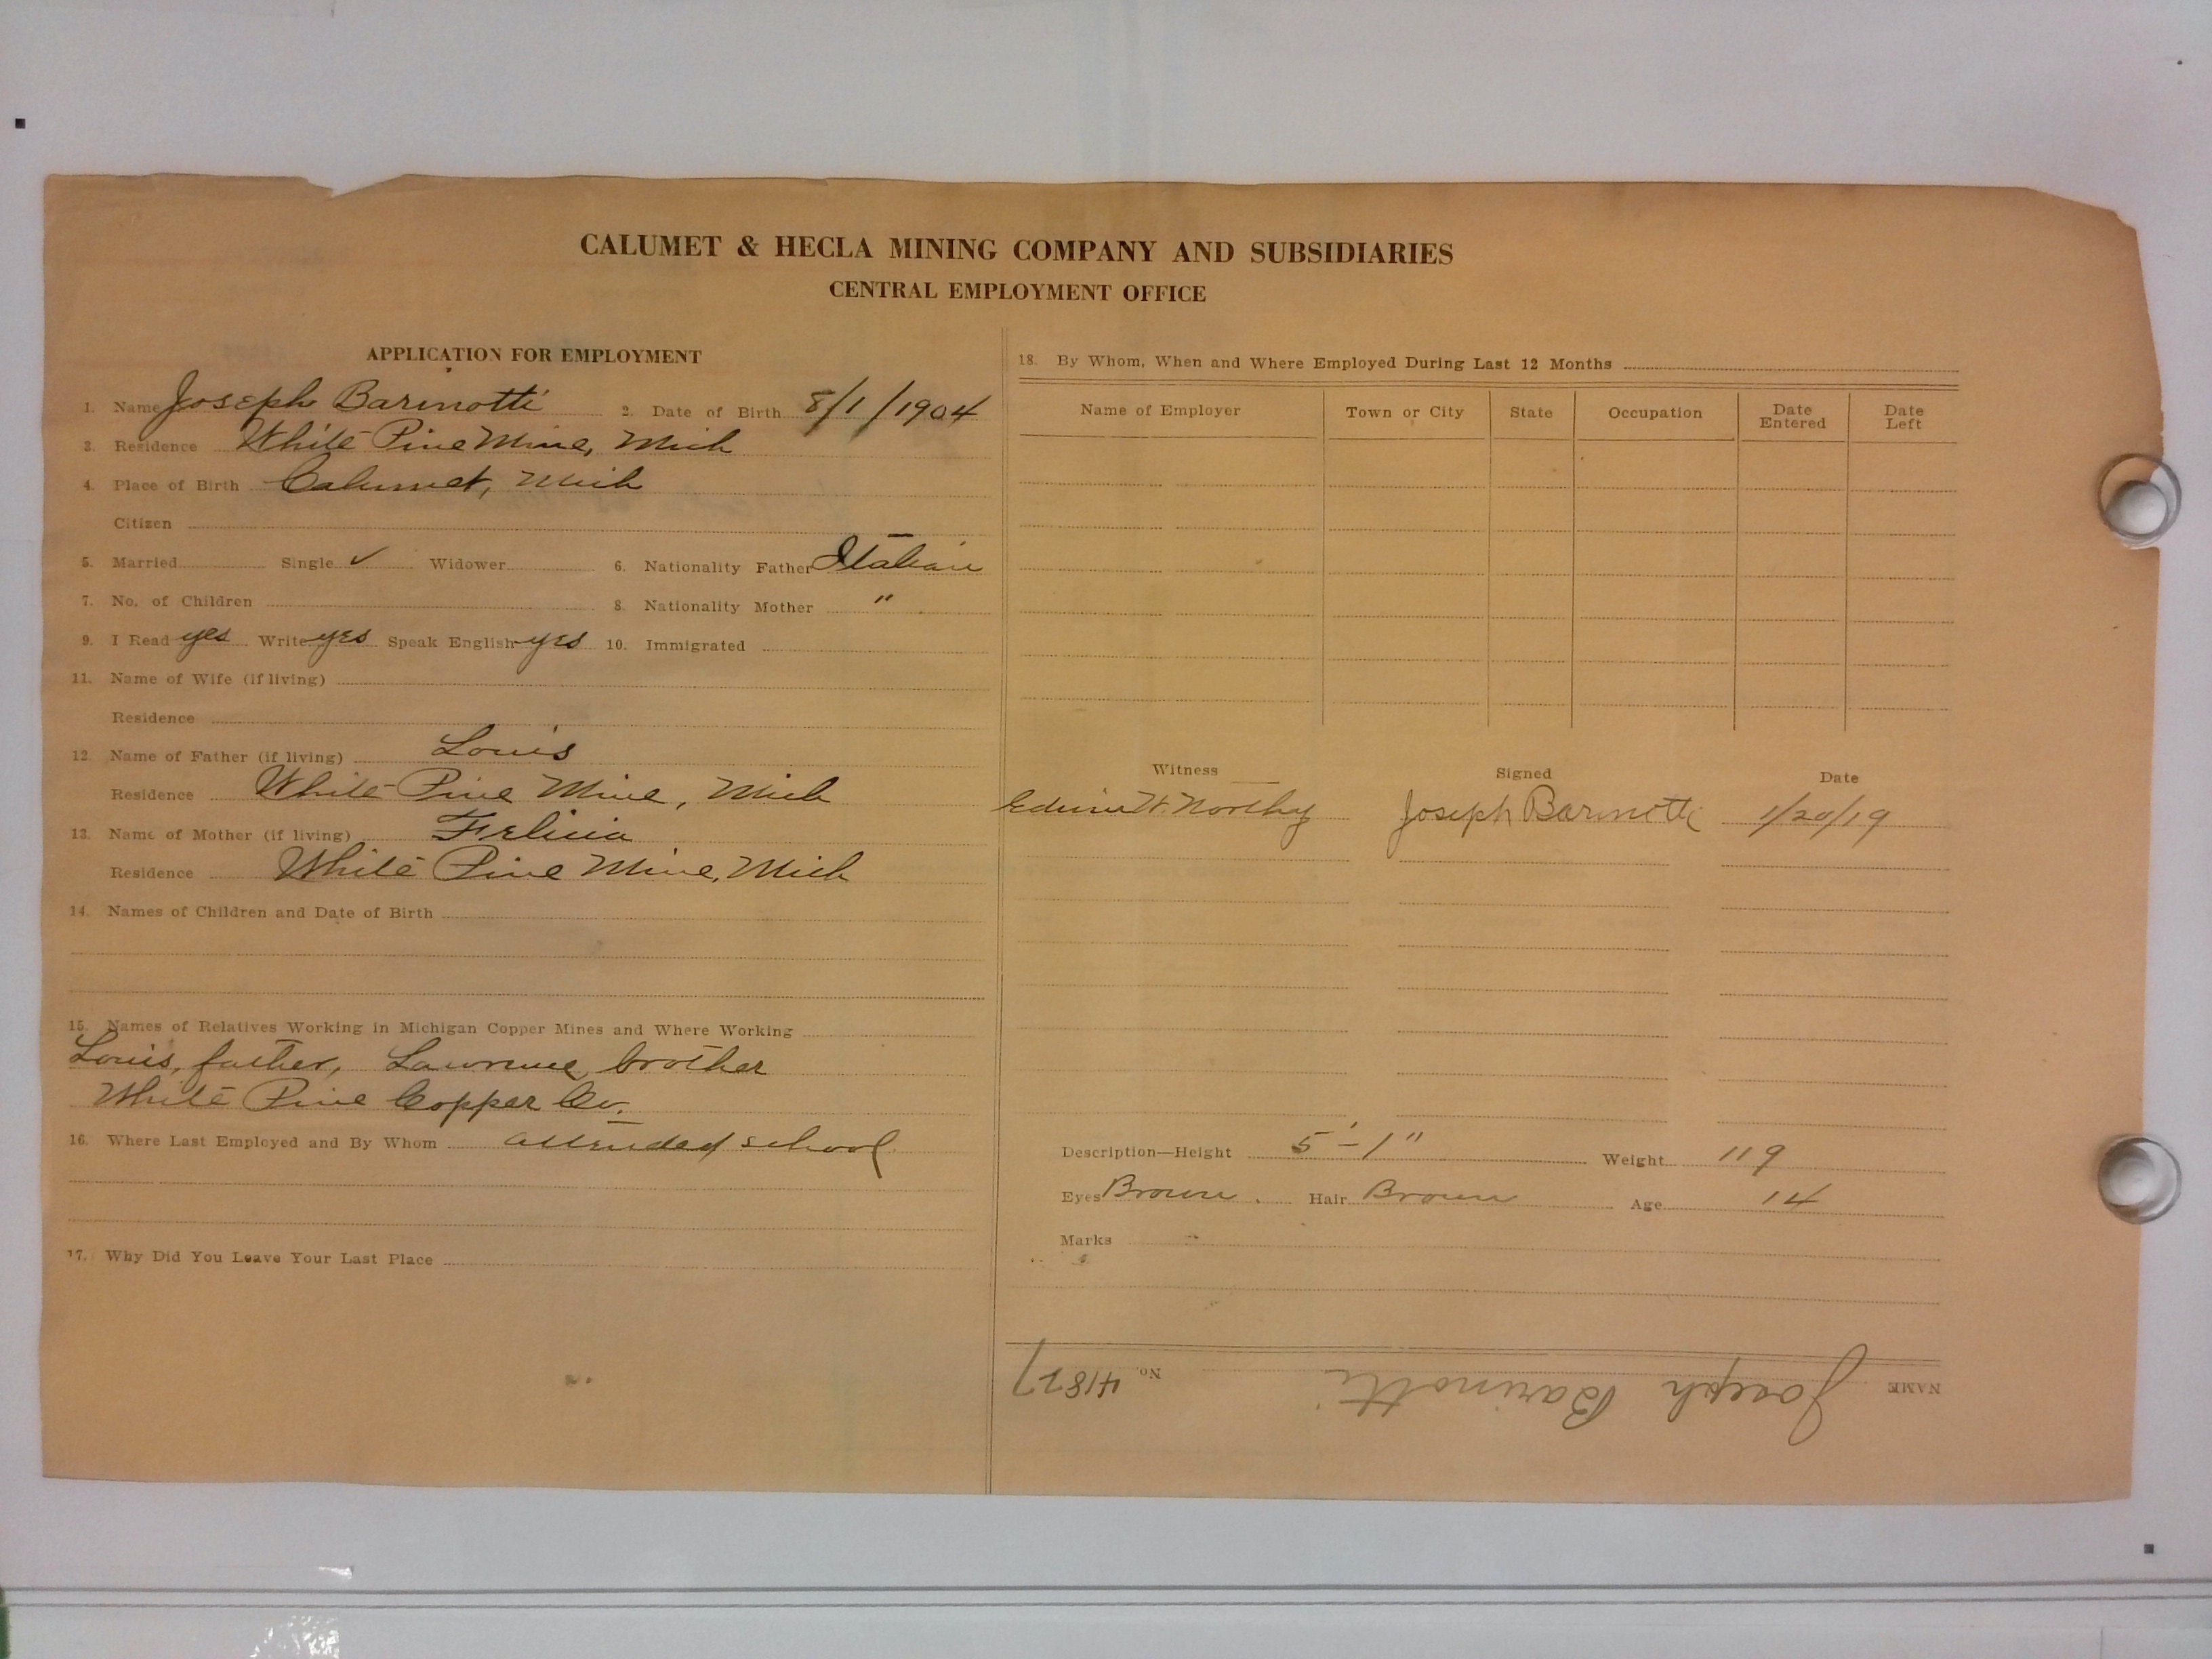 CALUMET & HECLA MINING COMPANY AND SUBSIDIARIES
CENTRAL EMPLOYMENT OFFICE
APPLICATION FOR EMPLOYMENT
1. Name Joseph Barinotti 2. Date of Birth 8/1/1904
3. Residence White Pine Mine, Mich
4. Place of Birth Calumet, Mich
Citizen
5. Married Single ✓ Widower 6. Nationality Father Italian
7. No. of Children 8. Nationality Mother "
9. I Read yes Write yes Speak English yes 10. Immigrated
11. Name of Wife (if living)
Residence
12. Name of Father (if living) Louis
Residence White Pine Mine, Mich
13. Name of Mother (if living) Felicia
Residence White Pine Mine, Mich
14. Names of Children and Date of Birth
15. Names of Relatives Working in Michigan Copper Mines and Where Working
Louis, father, Lawrence, brother
White Pine Copper Co.
16. Where Last Employed and By Whom attended school
17. Why Did You Leave Your Last Place
18. By Whom, When and Where Employed During Last 12 Months
Name of Employer Town or City State Occupation Date Entered Date Left
Witness Signed Date
Edwin H. Northey Joseph Barinotti 1/20/19
Description—Height 5'-1" Weight 119
Eyes Brown. Hair Brown Age 14
Marks
NAME Joseph Barinotti No. 41877